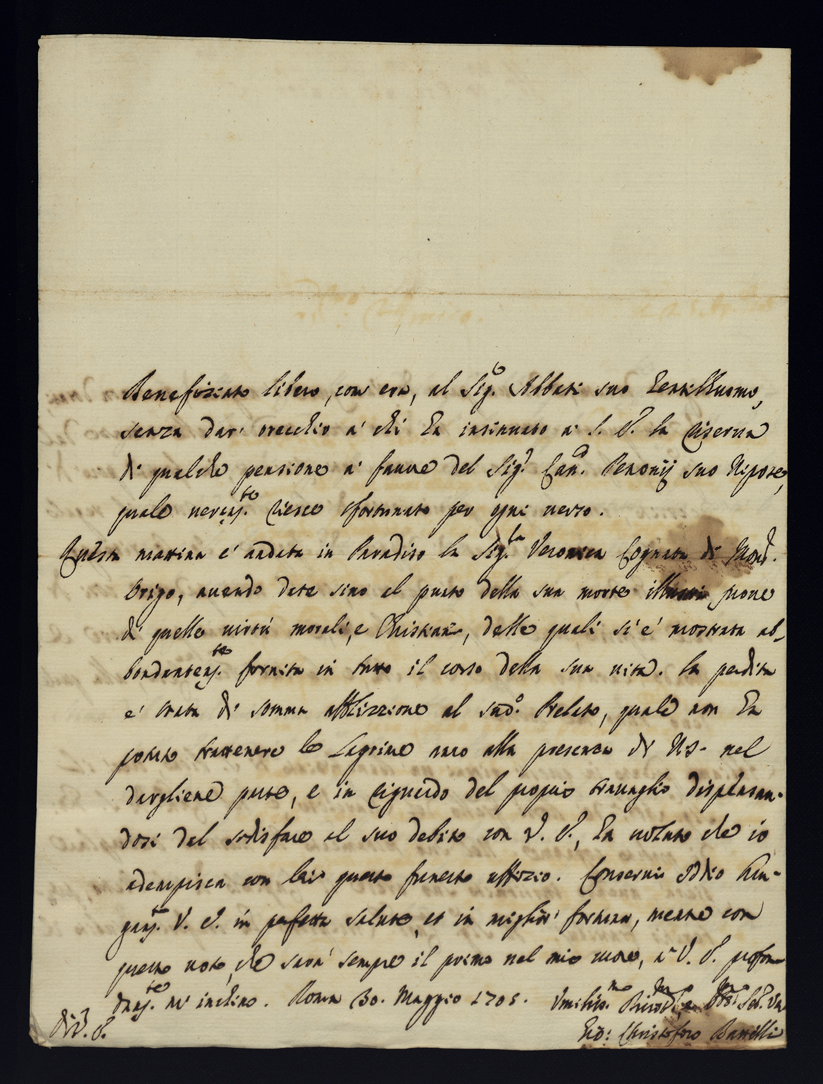 Beneficiato libero, com' era, al Sig.o Abbate suo Gentilhuomo,
senza dar' orecchio a' chi ha insinuato a' S. S. la riserva
di qualche pensione a' favore del Sig.r Can.co suo Nipote,
quale riesce sfortunato per ogni verso.
Questa mattina è andata in Paradiso la Sig.ra Veronica Cognata di Mons.r
Origo, avendo date sino al punto della sua morte prove
di quelle virtù morali, e Christiane, delle quali si è mostrata ab-
bondantem.te fornita in tutto il corso della sua vita. La perdita
è stata di somma afflizzione al sud.o Prelato, quale non ha
potuto trattenere le Lagrime anco alla presenza di NS. nel
dargliene parte, e in riguardo del proprio travaglio dispensan-
dosi del sodisfare al suo debito con V. S., ha voluto che io
adempisca con lei questo funesto uffizio. Conservi Iddio lun-
gam.te V. S. in perfetta salute, et in miglior' fortuna, mentre con
questo voto, che sarà sempre il primo nel mio cuore, a' V. S. profon-
dam.te m' inchino. Roma 30. Maggio 1705. Umiliss.mo
Di V. S. Christoforo